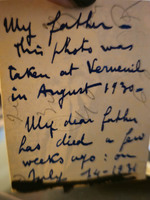 My father -
this photo was
taken at Verneuil
in August 1930 -
My dear father
has died a few
weeks ago: on
July 14-1931